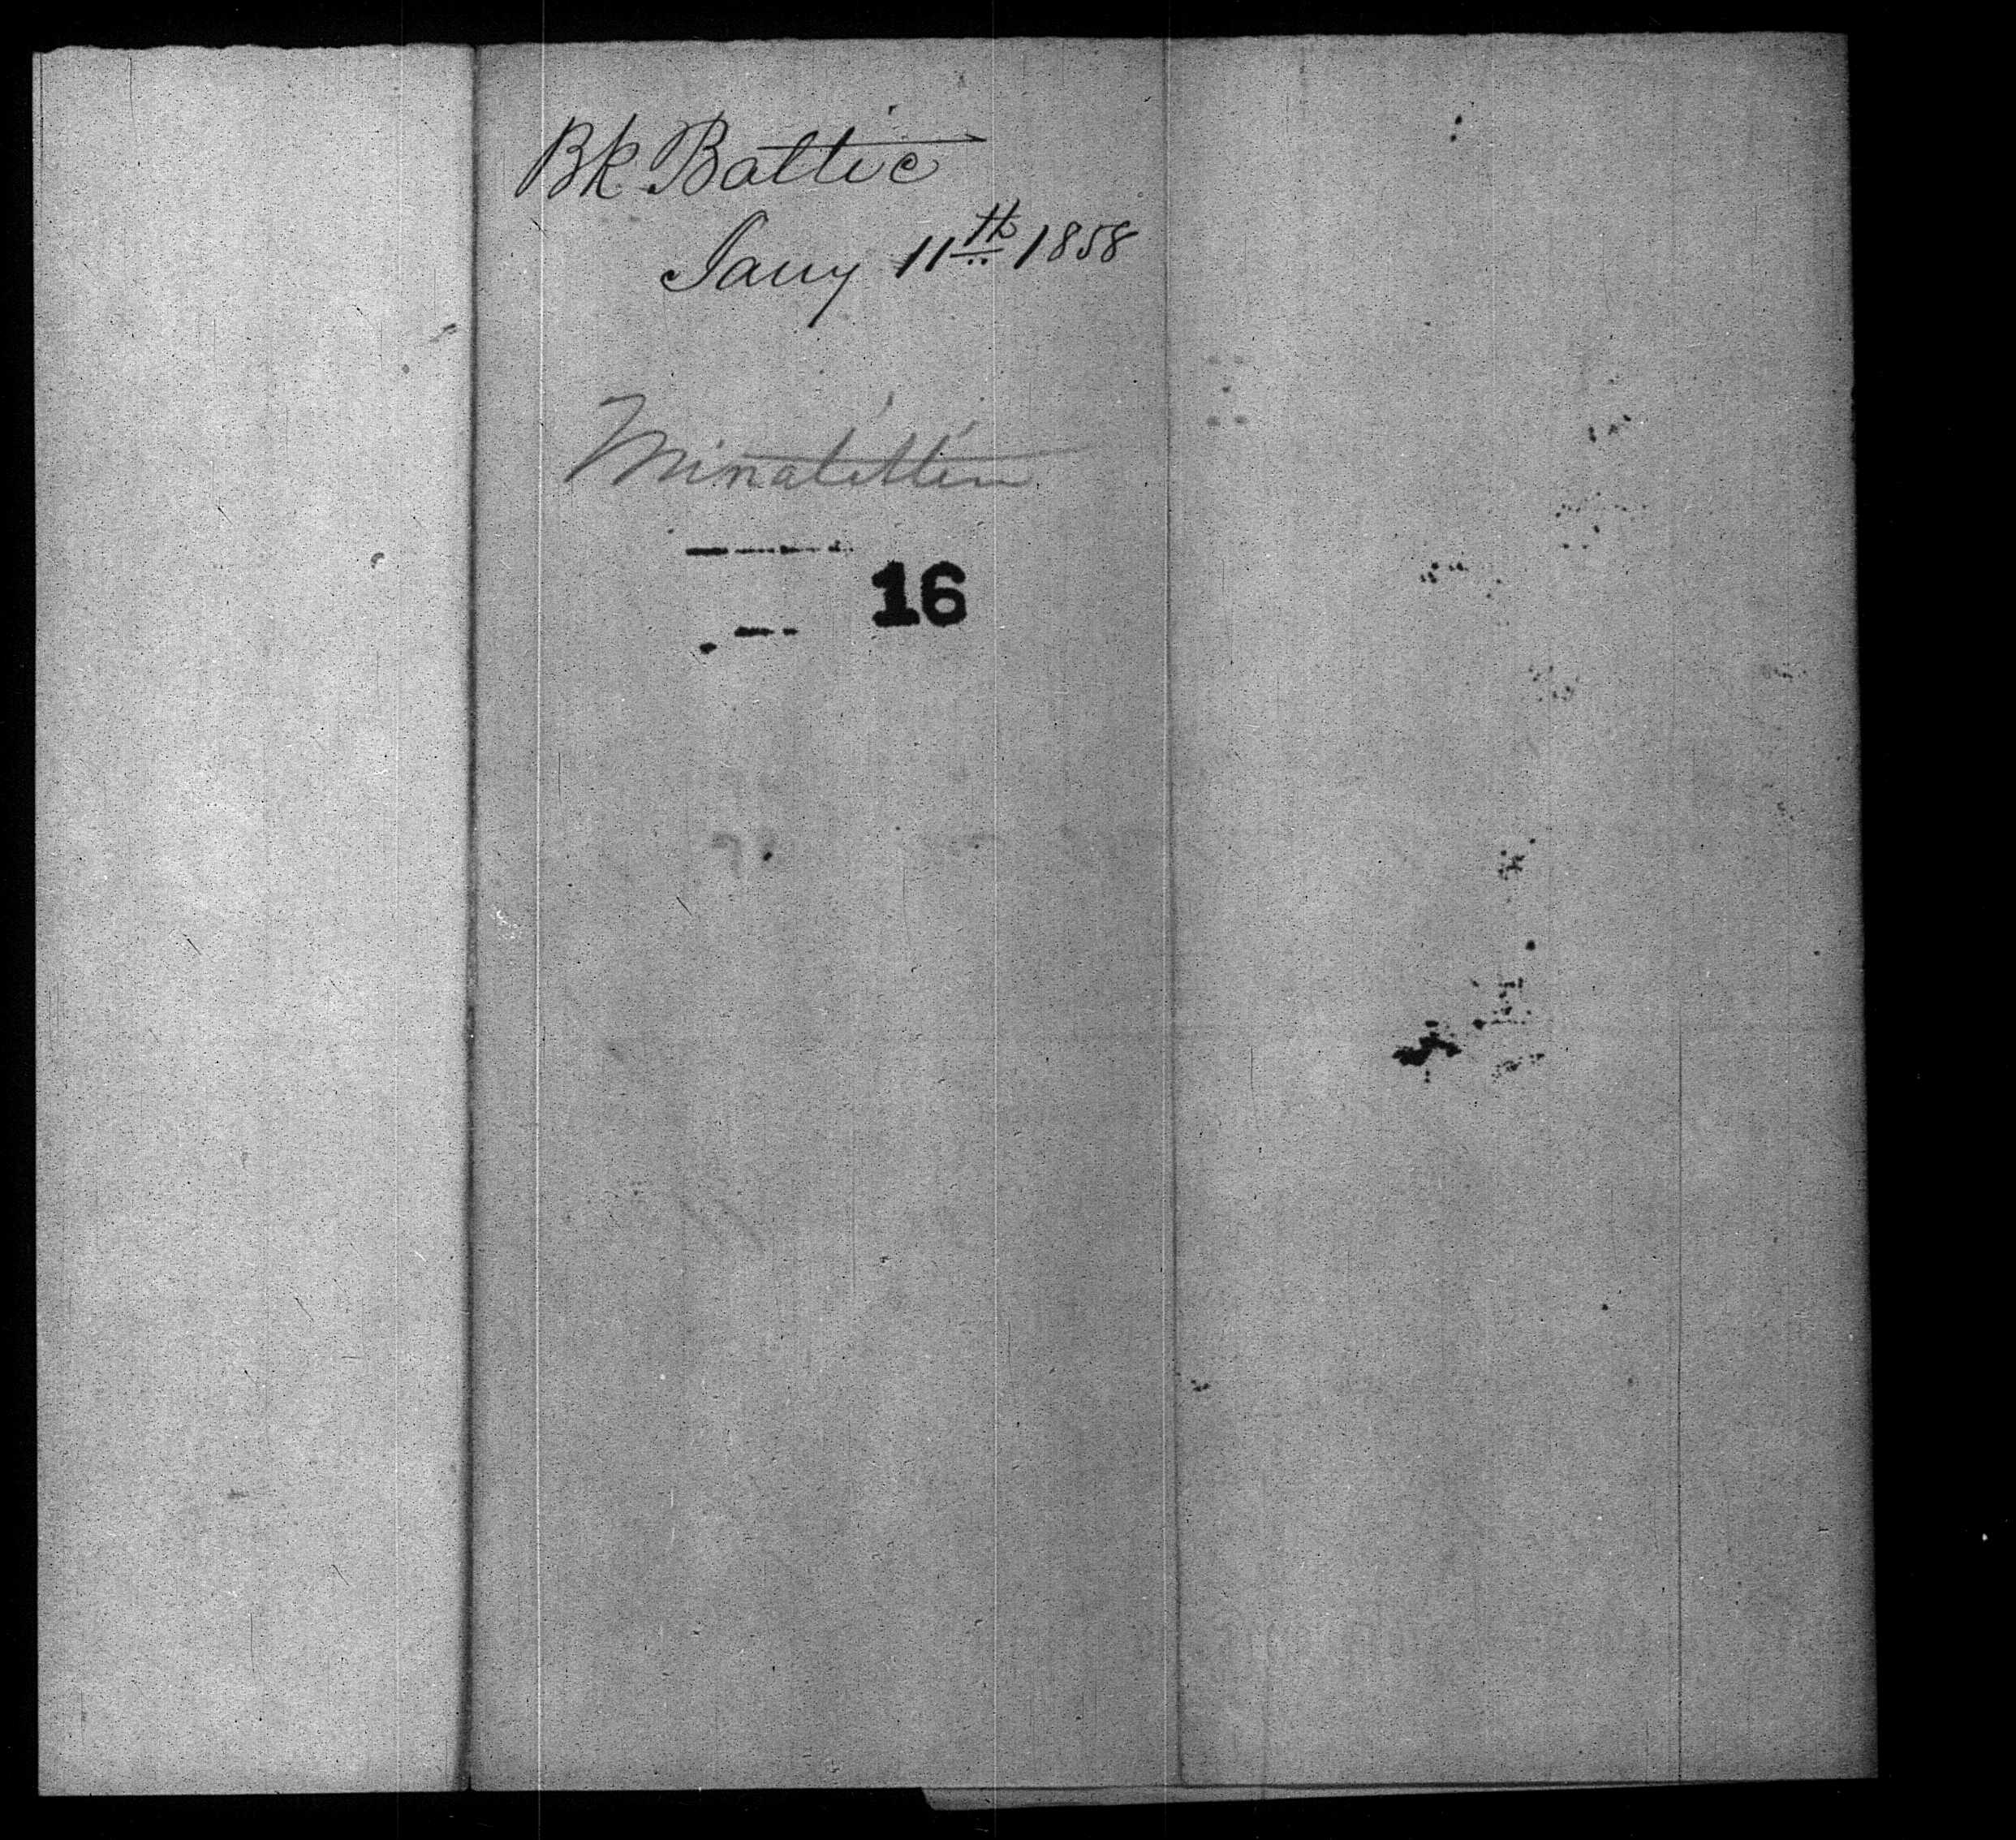 Bk Baltic
Jany 11th 1858
Minatitlin
16